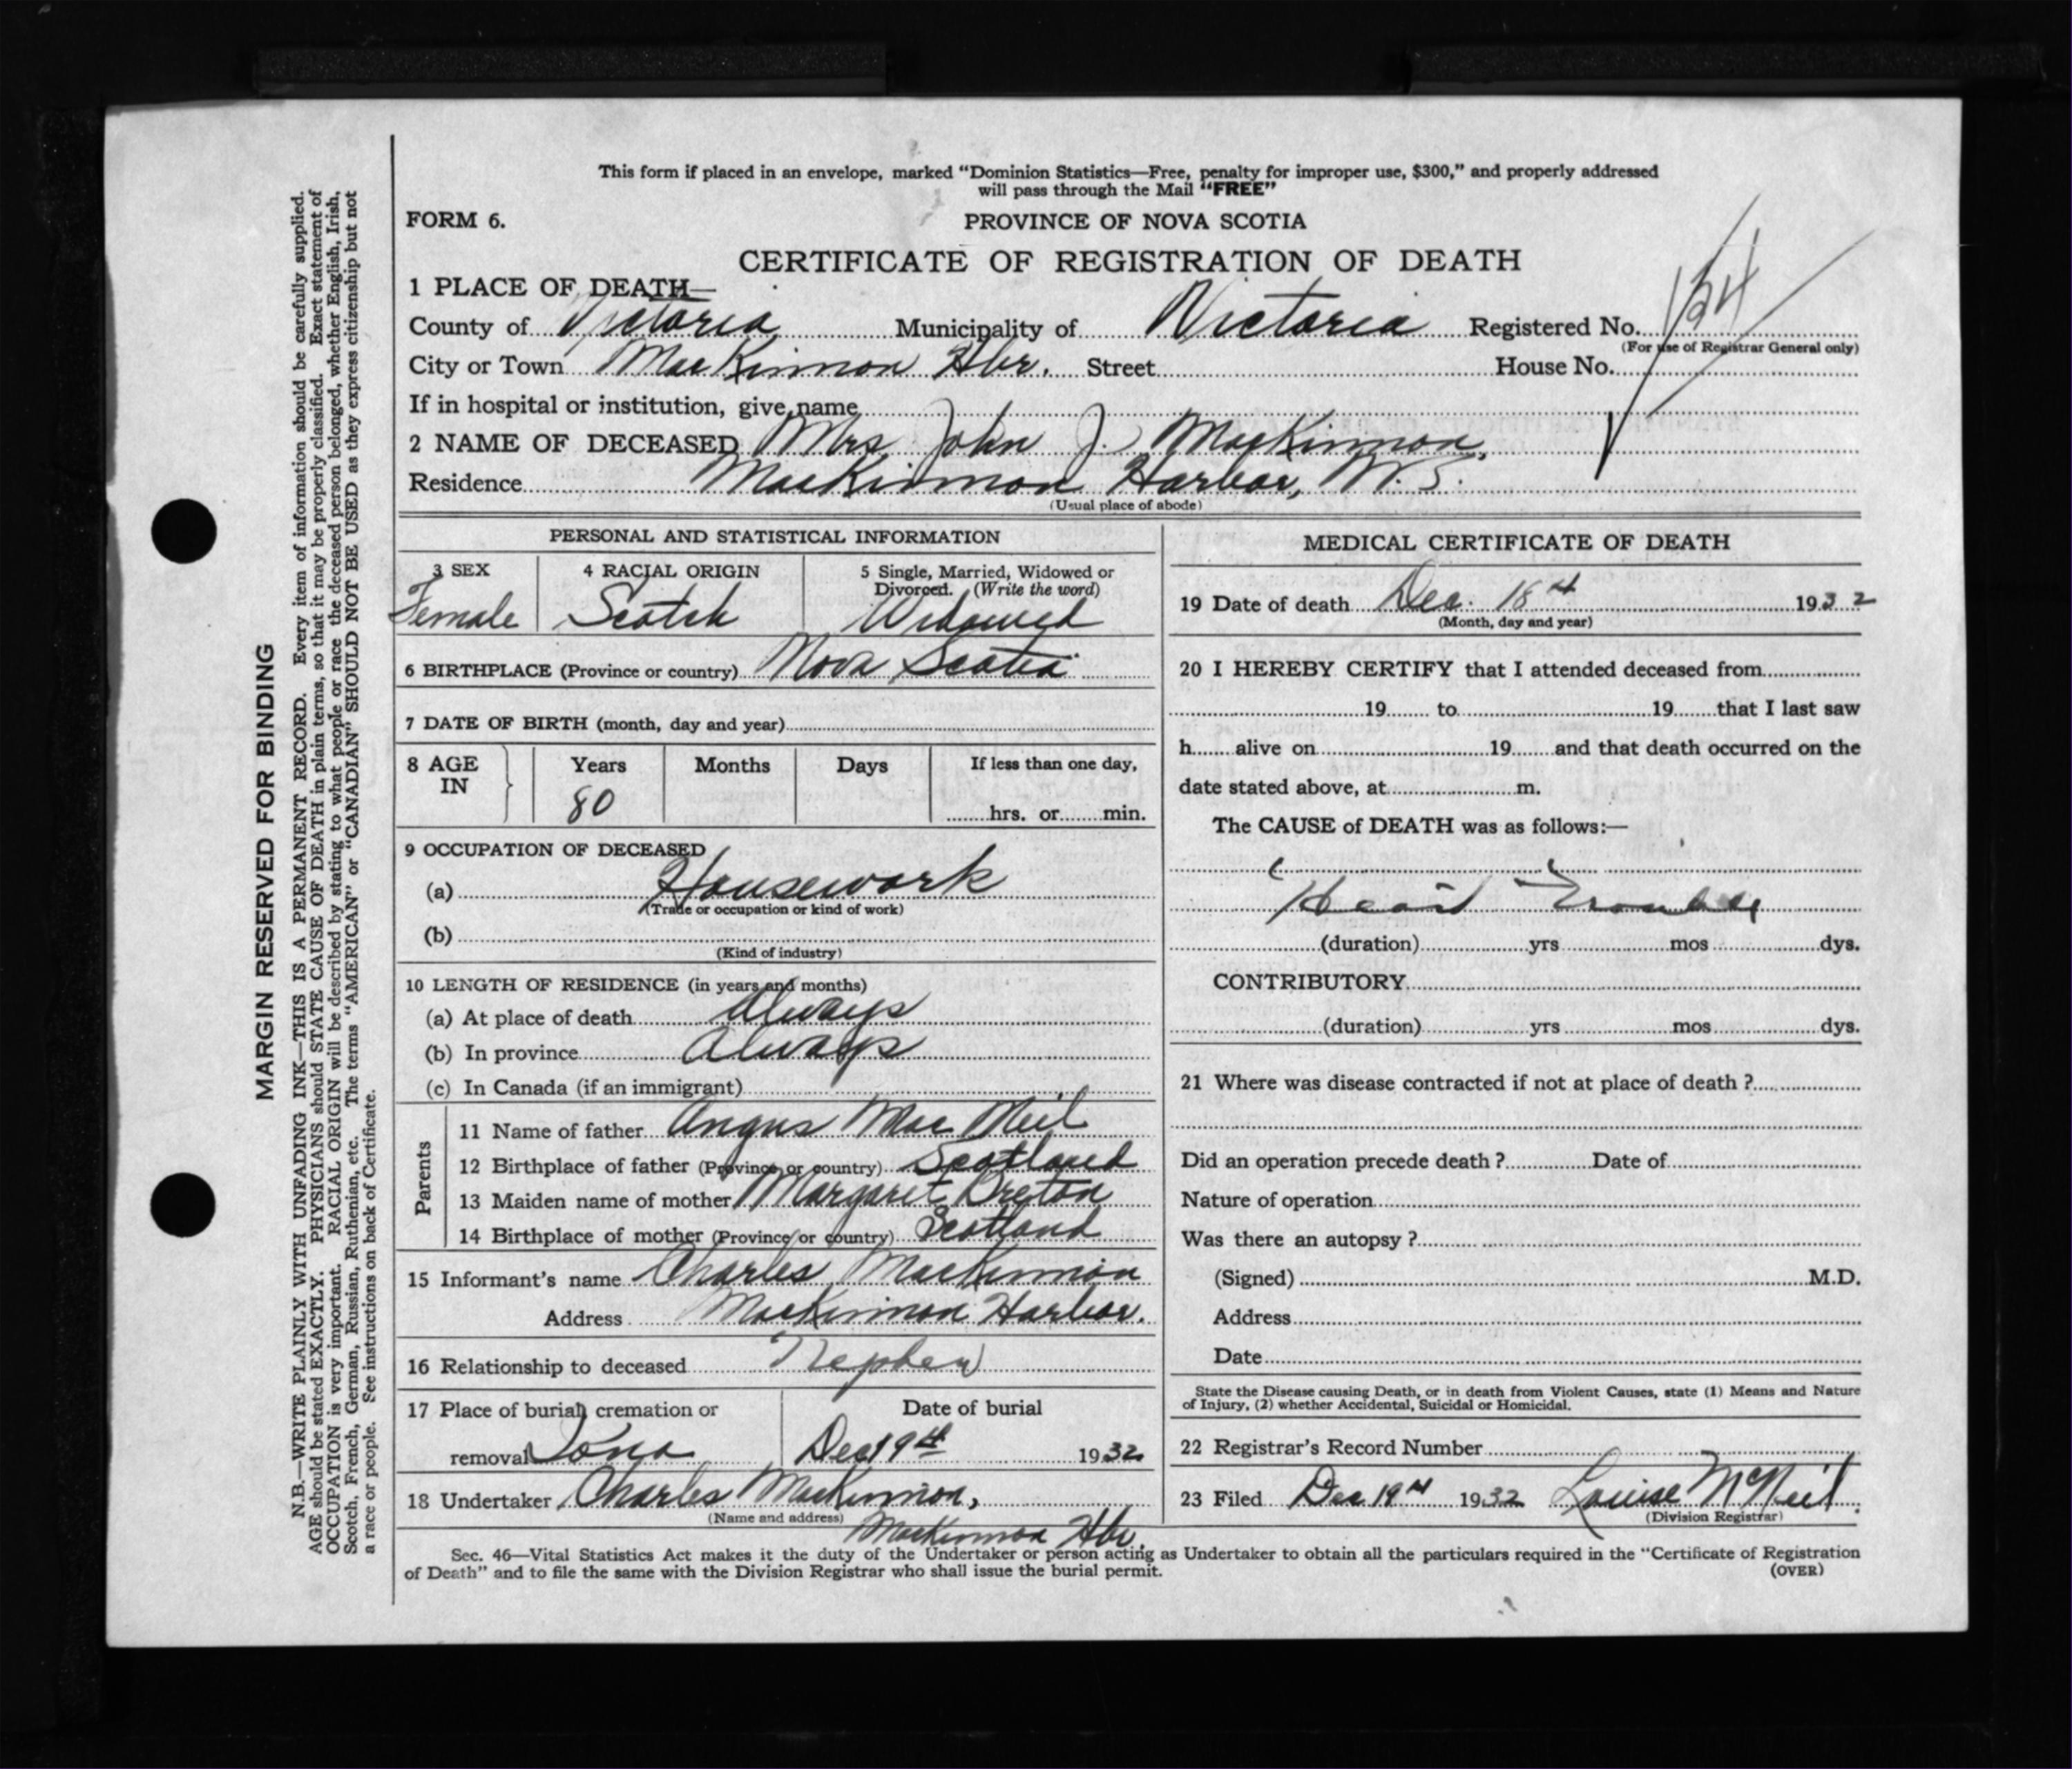 This form if placed in an envelope, marked “Dominion Statistics—Free, penalty for improper use, $300,” and properly addressed
will pass through the Mail “FREE”
FORM 6.
PROVINCE OF NOVA SCOTIA
CERTIFICATE OF REGISTRATION OF DEATH
1 PLACE OF DEATH—
County of Victoria Municipality of Victoria Registered No.
(For use of Registrar General only)
City or Town MacKinnon Hbr. Street House No.
If in hospital or institution, give name
2 NAME OF DECEASED Mrs. John J. MacKinnon,
Residence MacKinnon Harbor, N.S.
(Usual place of abode)
PERSONAL AND STATISTICAL INFORMATION
3 SEX 4 RACIAL ORIGIN 5 Single, Married, Widowed or
Divorced. (Write the word)
Female Scotch Widowed
6 BIRTHPLACE (Province or country) Nova Scotia
7 DATE OF BIRTH (month, day and year)
8 AGE IN Years Months Days If less than one day,
80 hrs. or min.
9 OCCUPATION OF DECEASED
(a) Housework
(Trade or occupation or kind of work)
(b)
(Kind of industry)
10 LENGTH OF RESIDENCE (in years and months)
(a) At place of death Always
(b) In province Always
(c) In Canada (if an immigrant)
Parents
11 Name of father Angus Mac Neil
12 Birthplace of father (Province or country) Scotland
13 Maiden name of mother Margaret Breton
14 Birthplace of mother (Province or country) Scotland
15 Informant's name Charles MacKinnon
Address MacKinnon Harbor.
16 Relationship to deceased Nephew
17 Place of burial, cremation or Date of burial
removal Iona Dec 19th 1932
18 Undertaker Charles MacKinnon,
(Name and address) MacKinnon Hbr.
MEDICAL CERTIFICATE OF DEATH
19 Date of death Dec. 18th 1932
(Month, day and year)
20 I HEREBY CERTIFY that I attended deceased from
19 to 19 that I last saw
h alive on 19 and that death occurred on the
date stated above, at m.
The CAUSE of DEATH was as follows:—
Heart Trouble
(duration) yrs mos dys.
CONTRIBUTORY
(duration) yrs mos dys.
21 Where was disease contracted if not at place of death ?
Did an operation precede death ? Date of
Nature of operation
Was there an autopsy ?
(Signed) M.D.
Address
Date
State the Disease causing Death, or in death from Violent Causes, state (1) Means and Nature
of Injury, (2) whether Accidental, Suicidal or Homicidal.
22 Registrar's Record Number
23 Filed Dec 19th 1932 Louise McNeil.
(Division Registrar)
Sec. 46—Vital Statistics Act makes it the duty of the Undertaker or person acting as Undertaker to obtain all the particulars required in the “Certificate of Registration
of Death” and to file the same with the Division Registrar who shall issue the burial permit.
(OVER)
MARGIN RESERVED FOR BINDING
N.B.—WRITE PLAINLY WITH UNFADING INK—THIS IS A PERMANENT RECORD. Every item of information should be carefully supplied.
AGE should be stated EXACTLY. PHYSICIANS should STATE CAUSE OF DEATH in plain terms, so that it may be properly classified. Exact statement of
OCCUPATION is very important. RACIAL ORIGIN will be described by stating to what people or race the deceased person belonged, whether English, Irish,
Scotch, French, German, Russian, Ruthenian, etc. The terms “AMERICAN” or “CANADIAN” SHOULD NOT BE USED as they express citizenship but not
a race or people. See instructions on back of Certificate.